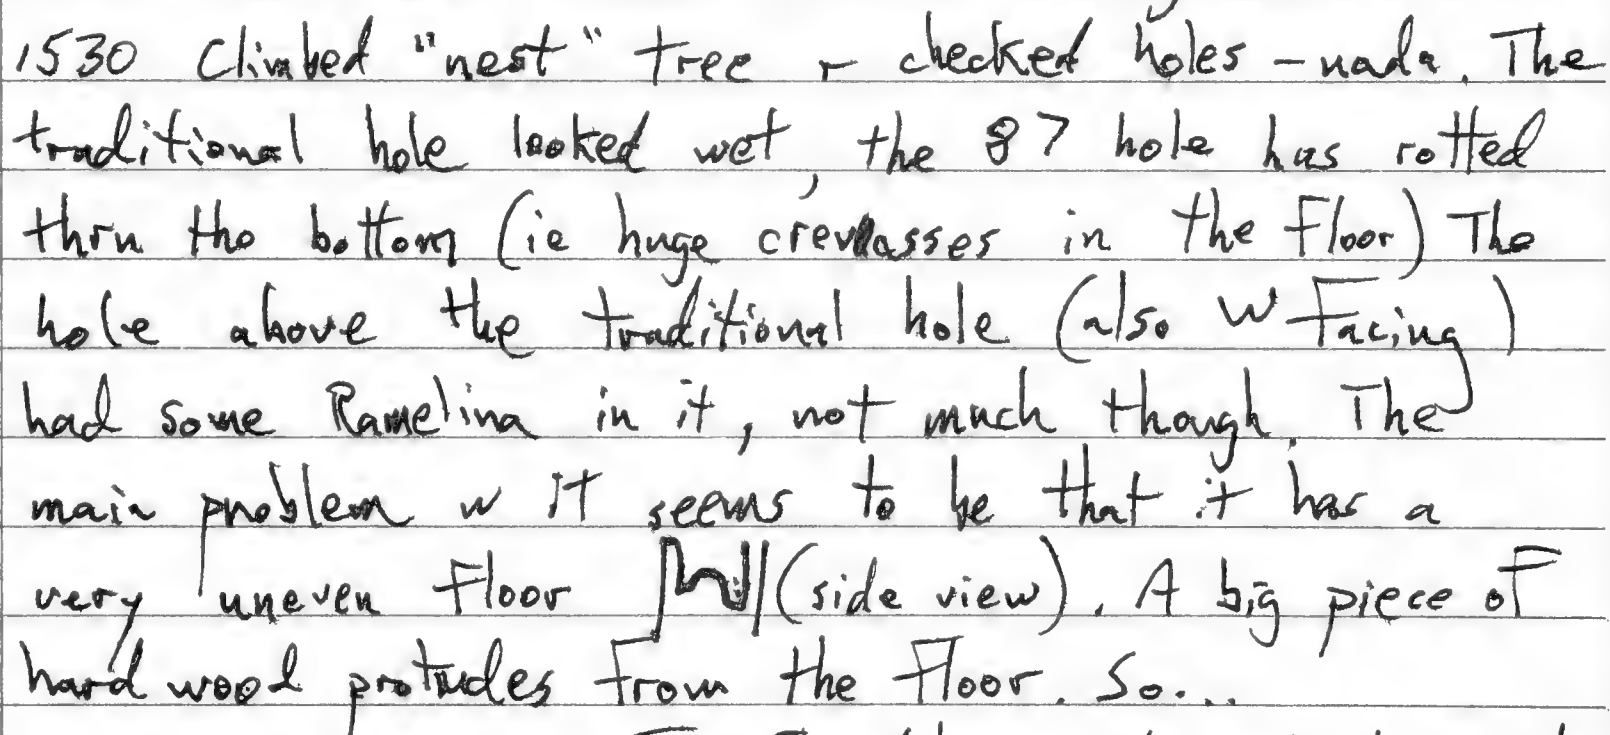 1530 Climbed "nest" tree + checked holes - nada. The
traditional hole looked wet, the 87 hole has rotted
thru the bottom (ie huge crevasses in the floor) The
hole above the traditional hole (also W facing)
had some Ramelina in it, not much though. The
main problem w it seems to be that it has a
very uneven floor (side view). A big piece of
hard wood protrudes from the floor. So...